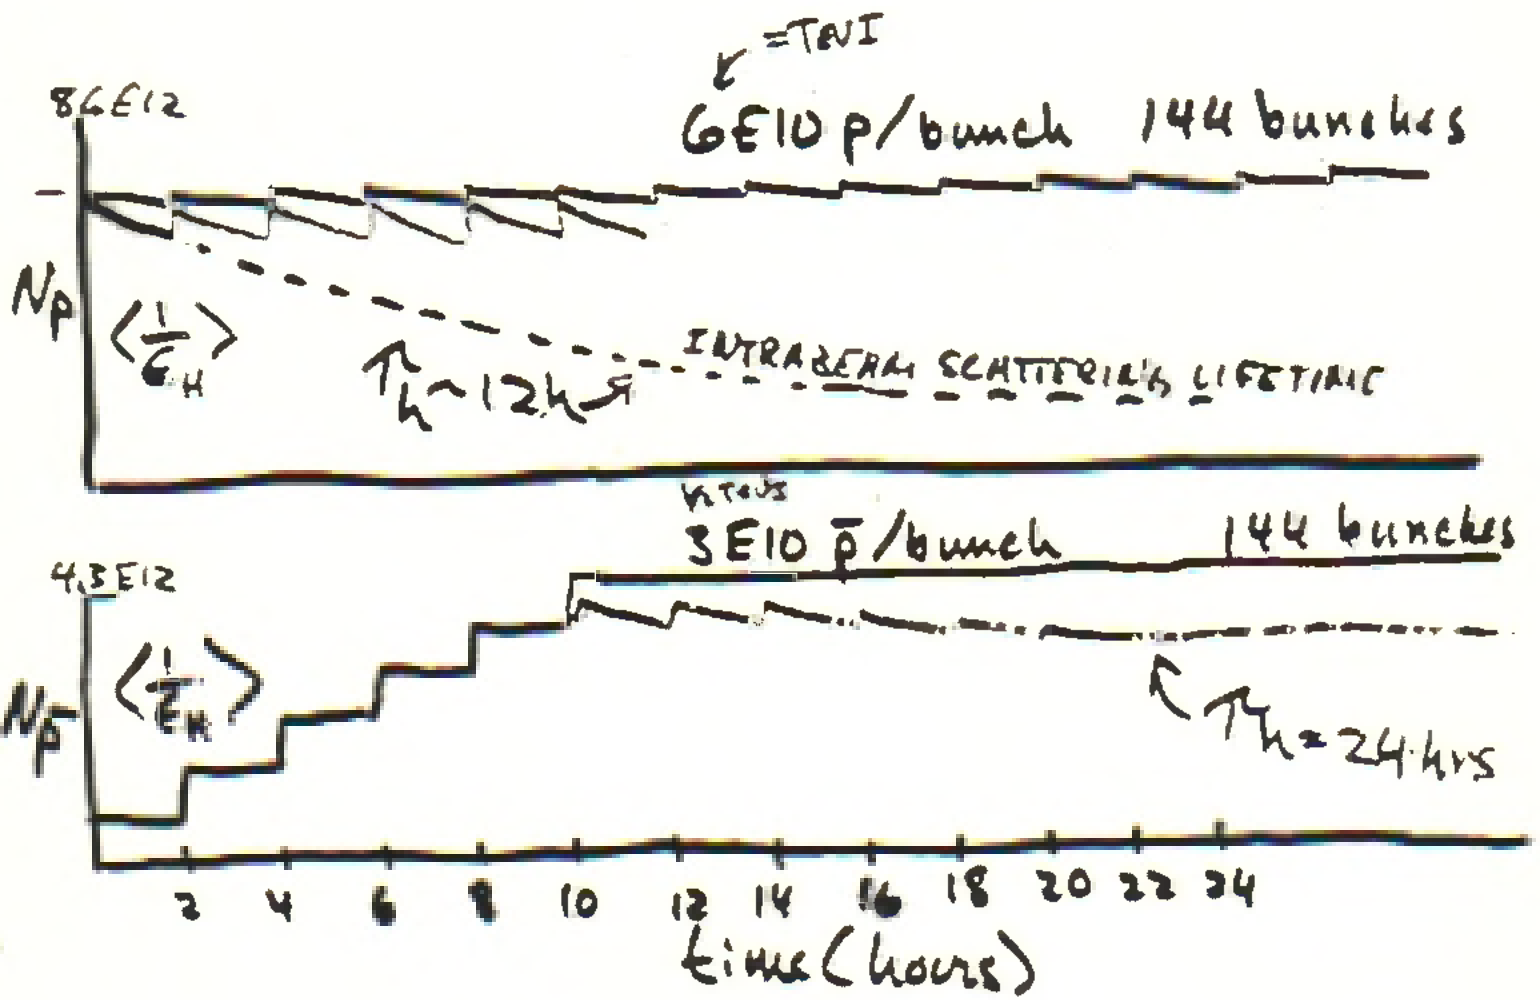 =TeVI
86E12
6E10 p/bunch 144 bunches
Np
⟨1/ϵH⟩
τh~12h
INTRABEAM SCATTERING LIFETIME
3E10 p̄/bunch 144 bunches
4.3E12
⟨1/ϵH⟩
Np̄
τh=24 hrs
2 4 6 8 10 12 14 16 18 20 22 24
time (hours)